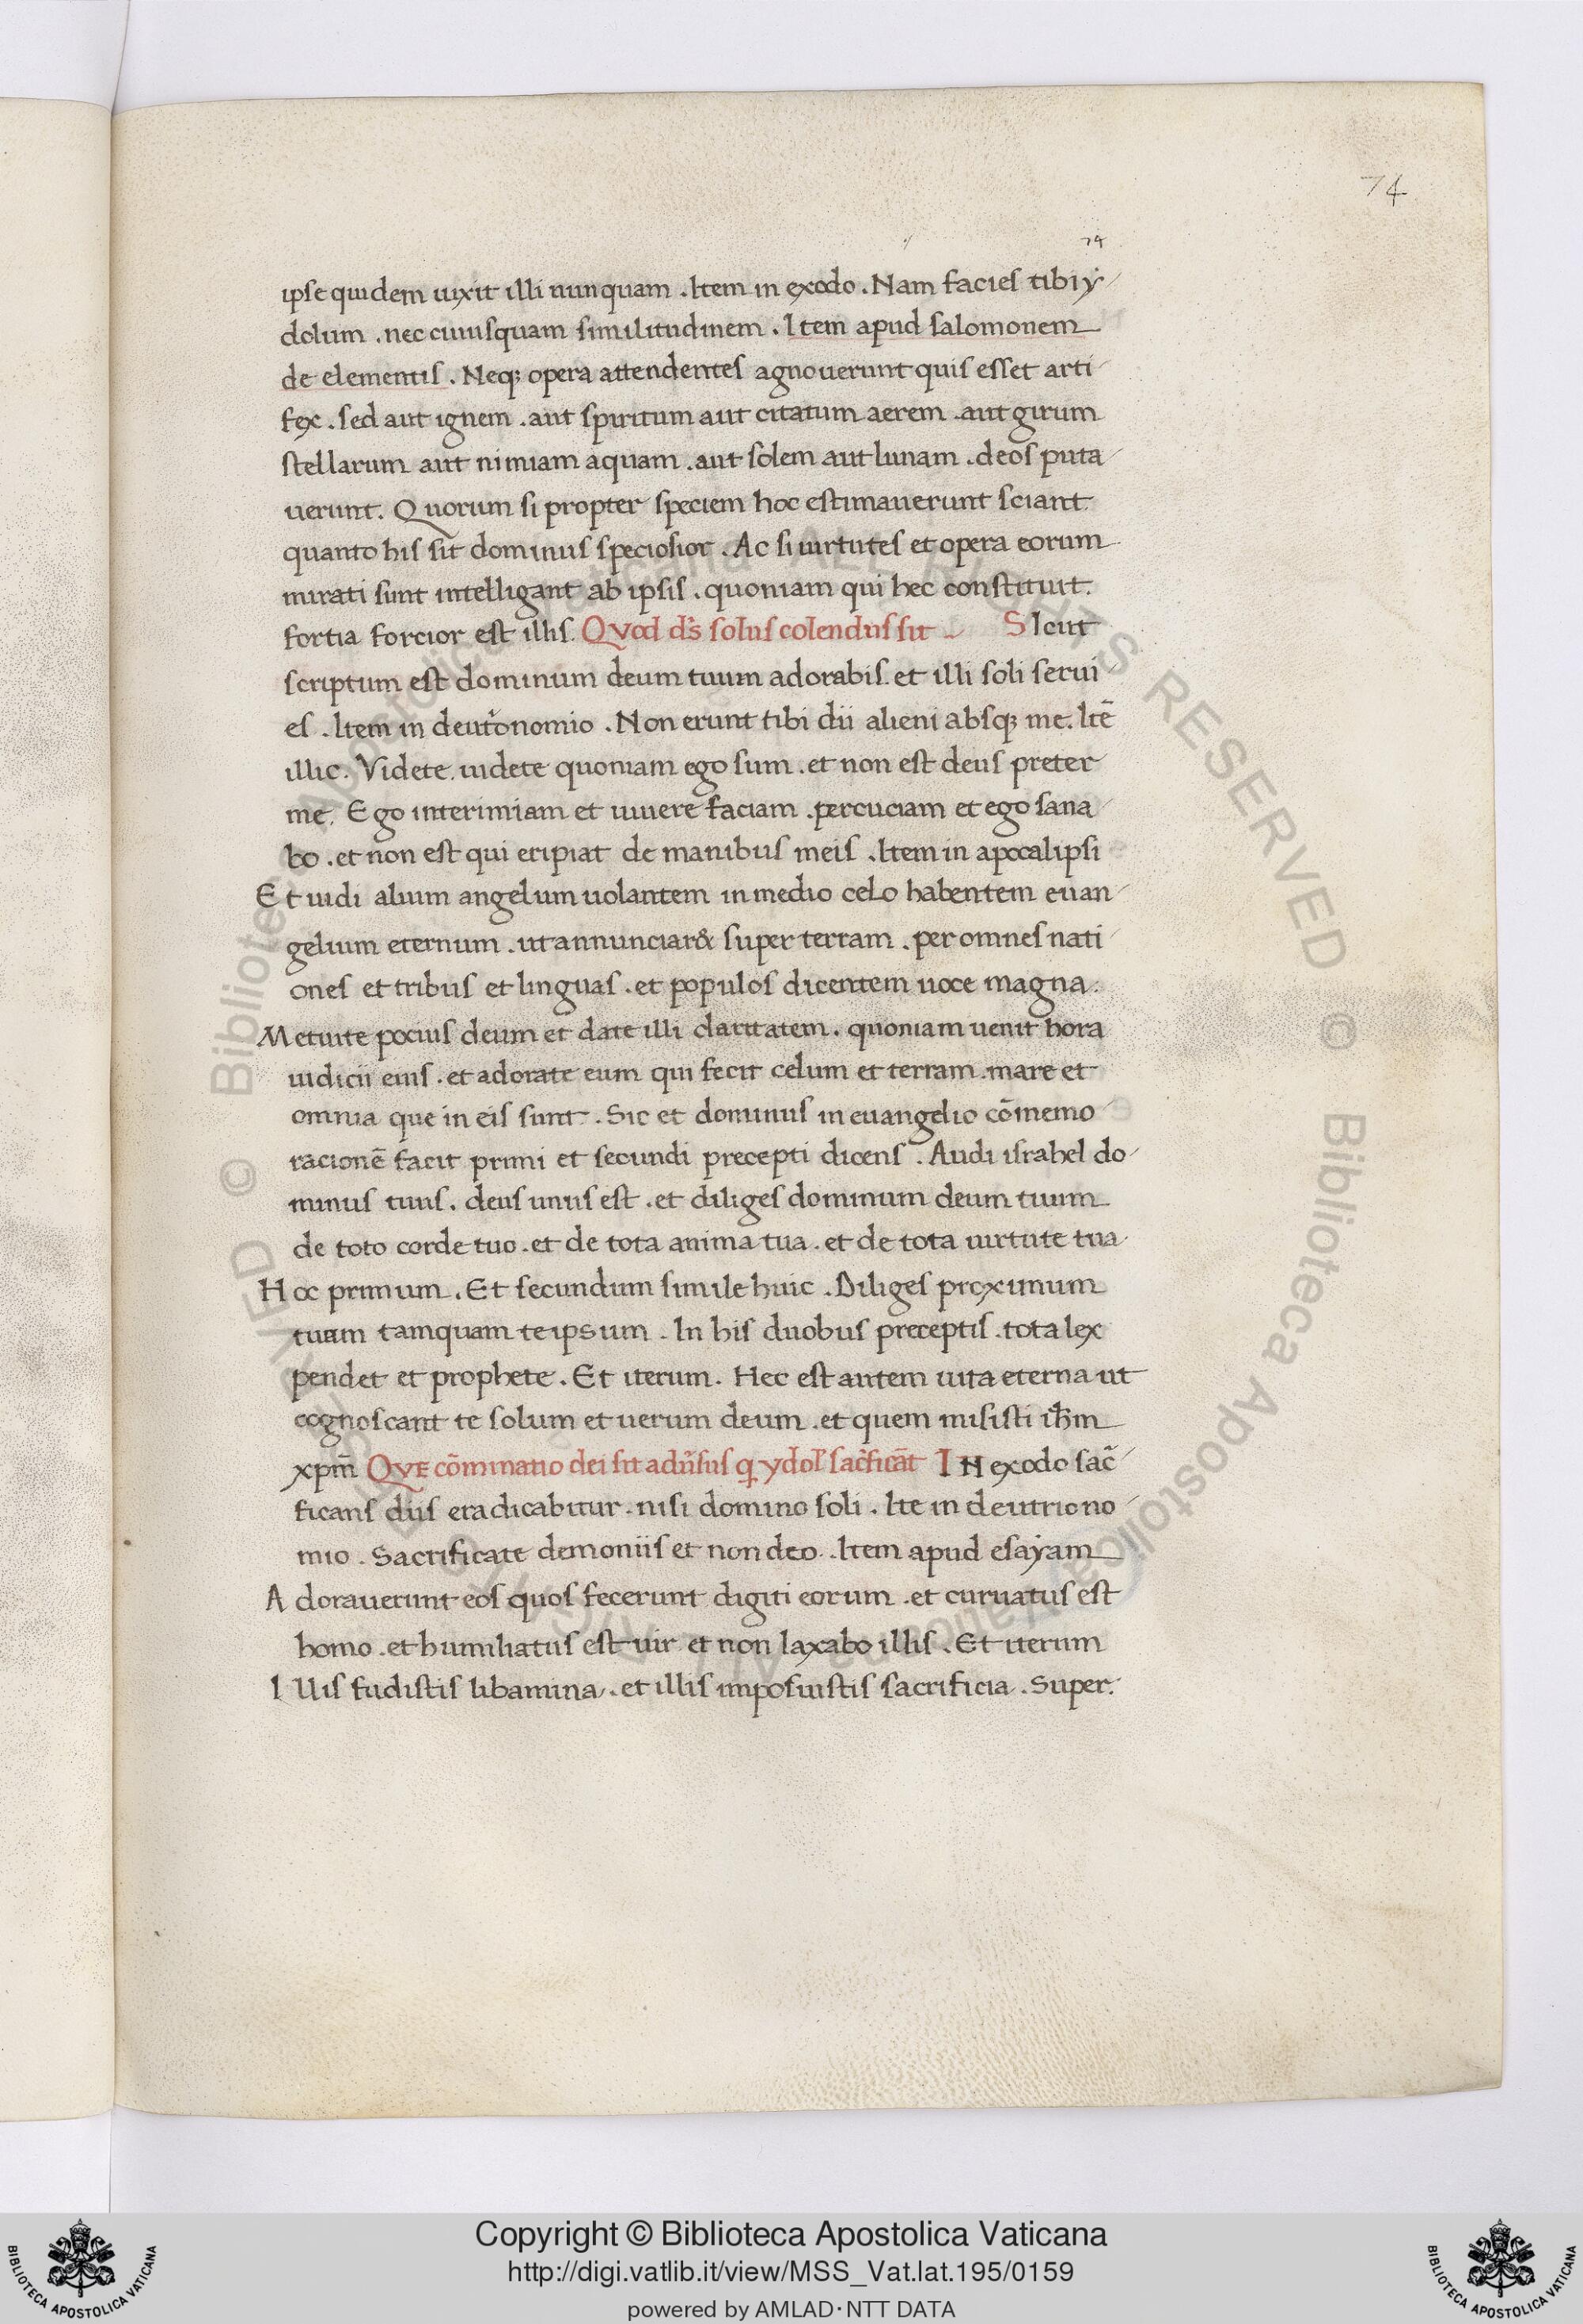 74
74
ipse quidem uixit illi nunquam . Item in exodo . Nam facies tibi ẏ
dolum . nec cuiusquam similitudinem . Item apud salomonem
de elementis . Neq; opera attendentes agnouerunt quis esset arti
fex . sed aut ignem . aut spiritum aut citatum aerem . aut girum
stellarum aut nimiam aquam . aut solem aut lunam . deos puta
uerunt. Quorum si propter speciem hoc estimauerunt sciant.
quanto his sit dominus speciosior . Ac si uirtutes et opera eorum
mirati sunt intelligant ab ipsis . quoniam qui hec constituit.
fortia forcior est illis. Qvod ds̄ solus colendus sit SIcut
scriptum est dominum deum tuum adorabis. et illi soli serui
es . Item in deut᷑onomio . Non erunt tibi dii alieni absq; me. Itē
illic. Videte. uidete quoniam ego sum . et non est deus preter
me. Ego interimiam et uiuere faciam . percuciam et ego sana
bo . et non est qui eripiat de manibus meis . Item in apocalipsi
Et uidi alium angelum uolantem in medio celo habentem euan
gelium eternum . ut annunciar& super terram . per omnes nati
ones et tribus et linguas . et populos dicentem uoce magna.
Metuite pocius deum et date illi claritatem . quoniam uenit hora
iudicii eius . et adorate eum qui fecit celum et terram . mare et
omnia que in eis sunt . Sic et dominus in euangelio cōmemo
racionē facit primi et secundi precepti dicens . Audi israhel do
minus tuus . deus unus est . et diliges dominum deum tuum
de toto corde tuo . et de tota anima tua . et de tota uirtute tua
Hoc primum . Et secundum simile huic . Diliges proximum
tuam tamquam teipsum . In his duobus preceptis . tota lex
pendet et prophete . Et iterum . Hec est autem uita eterna ut
cognoscant te solum et uerum deum . et quem misisti ihm̄
xpm̄ QVE cōminatio dei sit adu᷑sus q̣ ydol᷑ sac᷑ficāt IN exodo sac᷑
ficans diis eradicabitur . nisi domino soli . Ite in deutriono
mio . Sacrificate demoniis et non deo . Item apud esaẏam
Adorauerunt eos quos fecerunt digiti eorum . et curuatus est
homo . et humiliatus est uir et non laxabo illis . Et iterum
Illis fudistis libamina . et illis imposuistis sacrificia . Super.
Copyright © Biblioteca Apostolica Vaticana
http://digi.vatlib.it/view/MSS_Vat.lat.195/0159
powered by AMLAD·NTT DATA
BIBLIOTECA APOSTOLICA VATICANA
BIBLIOTECA APOSTOLICA VATICANA